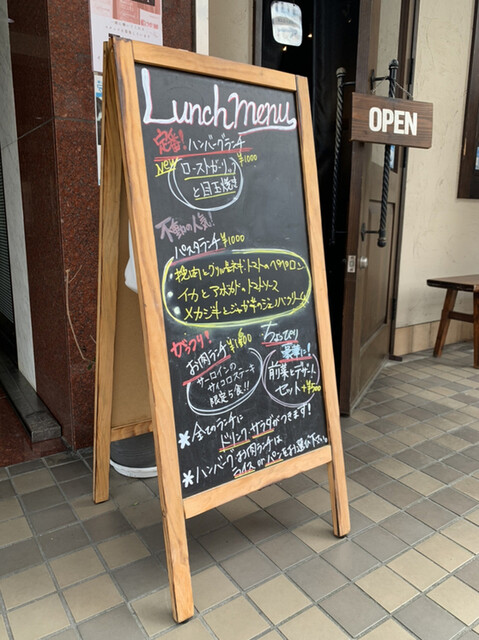 Lunch menu
OPEN
定番! ハンバーグランチ
NEW ¥1000
ローストガーリック
と目玉焼き
不動の人気!
パスタランチ ¥1000
・挽肉と トマトのペペロン
・イカとアボカドのトマトソース
・メカジキとジャガ芋のジェノバクリーム
がっつり!
お肉ランチ
サーロインの
サイコロステーキ
限定5食!!
ちょっぴり
豪華に!
前菜とデザート
セット +¥500
*全てのランチに
ドリンク、サラダができます!
*ハンバーグ・お肉ランチは
ライス or パンをお選び下さい。